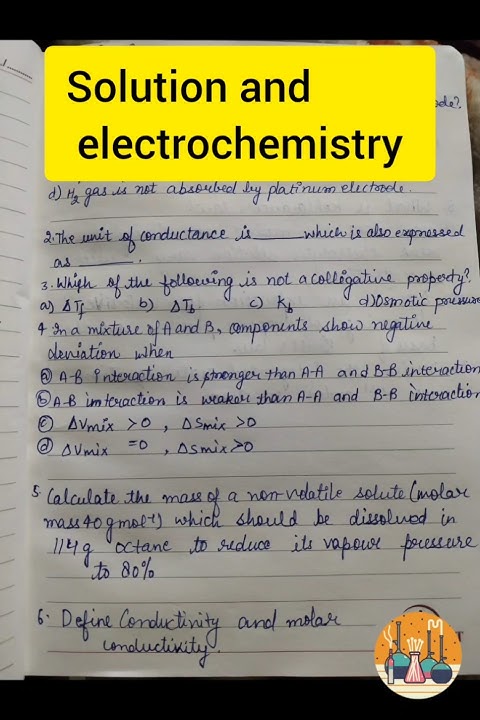 Solution and
electrochemistry
ode?
d) H2 gas is not absorbed by platinum electrode.
2. The unit of conductance is ____ which is also expressed
as ____.
3. Which of the following is not a colligative property?
a) ΔTf b) ΔTb c) Kb d) Osmotic pressure
4 In a mixture of A and B, components show negative
deviation when
ⓐ A-B interaction is stronger than A-A and B-B interaction
ⓑ A-B interaction is weaker than A-A and B-B interaction
ⓒ ΔVmix > 0, ΔSmix > 0
ⓓ ΔVmix = 0, ΔSmix > 0
5. Calculate the mass of a non-volatile solute (molar
mass 40 g mol⁻¹) which should be dissolved in
114 g octane to reduce its vapour pressure
to 80%
6. Define Conductivity and molar
conductivity.
T